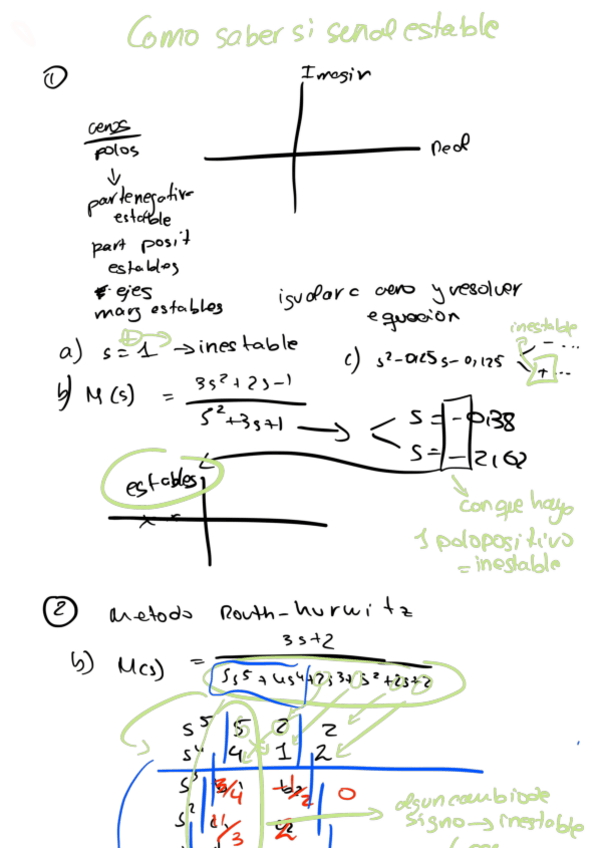 Como saber si señal estable
①
Imagin
Real
ceros
polos
↓
parte negativ
estable
part posit
estables
ejes
marg estables
igualar a cero y resolver
equación
inestable
a) s = 1 → inestable
c) s² - 0,125 s - 0,125
- ...
+ ...
b) M(s) = 3s² + 2s - 1
s² + 3s + 1
s = - 0,38
s = - 2,62
estables
con que haya
1 polo positivo
= inestable
② Metodo Routh-hurwitz
b) M(s) = 3s + 2
5s⁵ + 4s⁴ + 2s³ + s² + 2s + 2
s⁵ 5 2 2
s⁴ 4 1 2
s³ 3/4 -1/2 0
s² 11/3 2
algun cambio de
signo → inestable